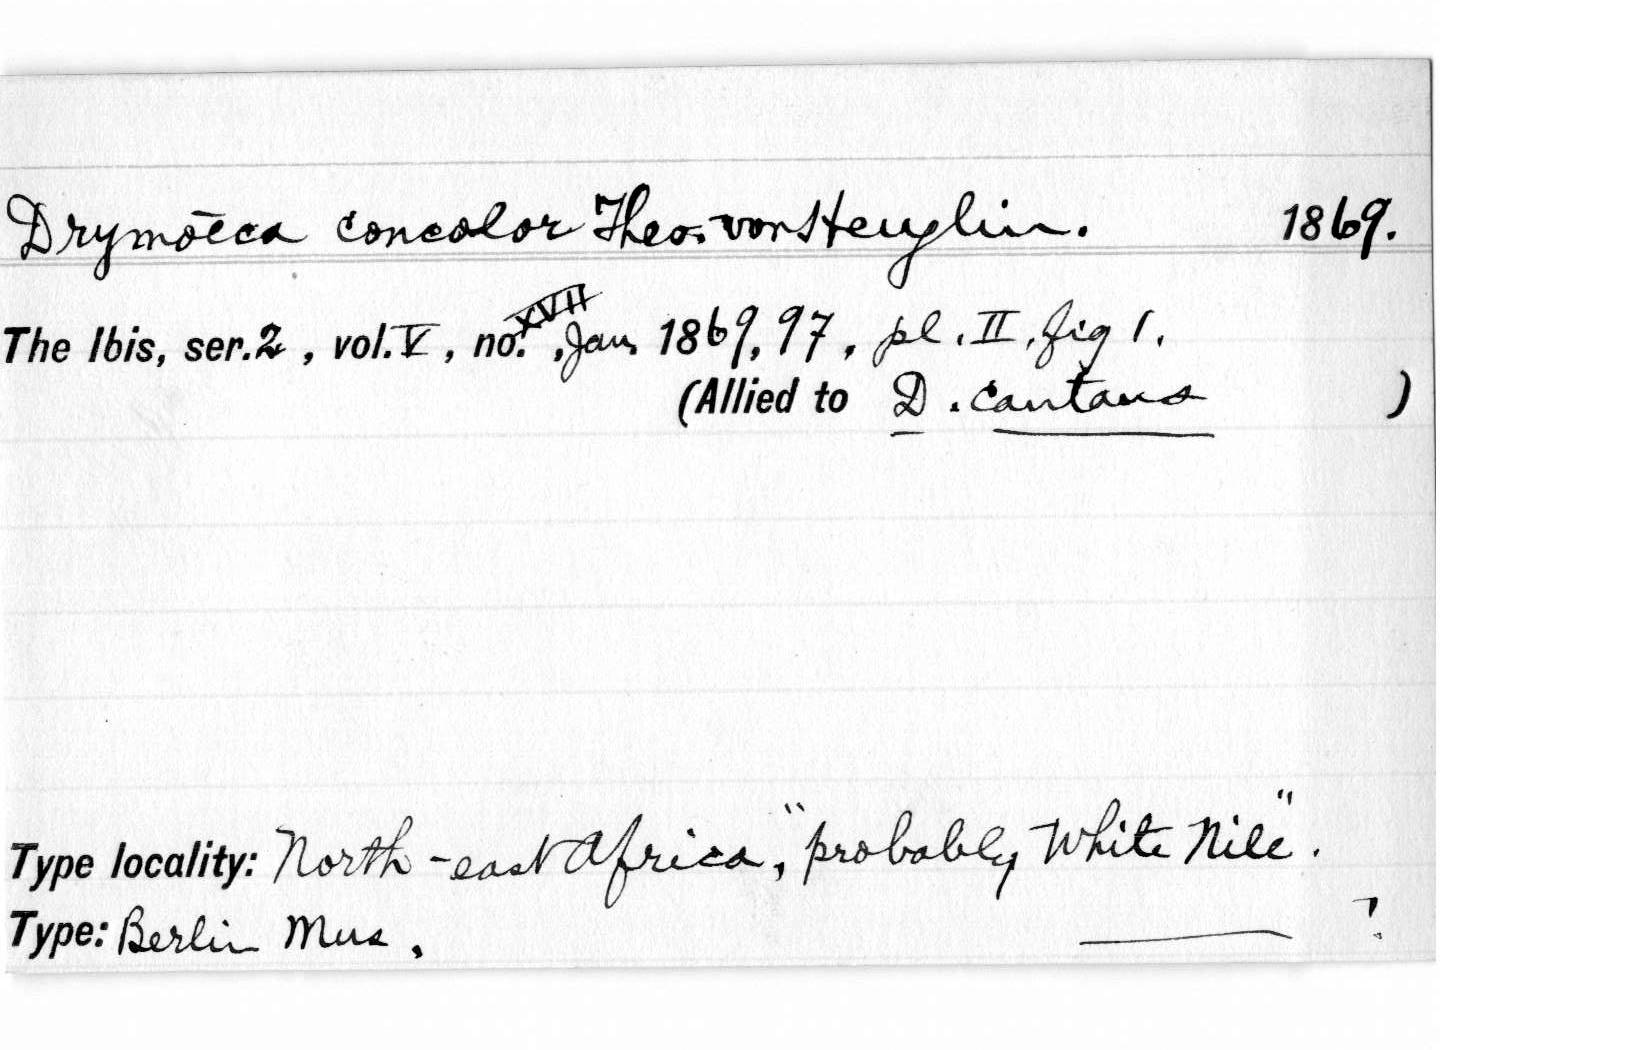 Drymōeca concolor Theo. von Heuglin. 1869.
The Ibis, ser. 2, vol. V, no. XVII, Jan. 1869, 97, pl. II, fig 1.
(Allied to D. cantans )
Type locality: North-east Africa, "probably White Nile".
Type: Berlin Mus. ?